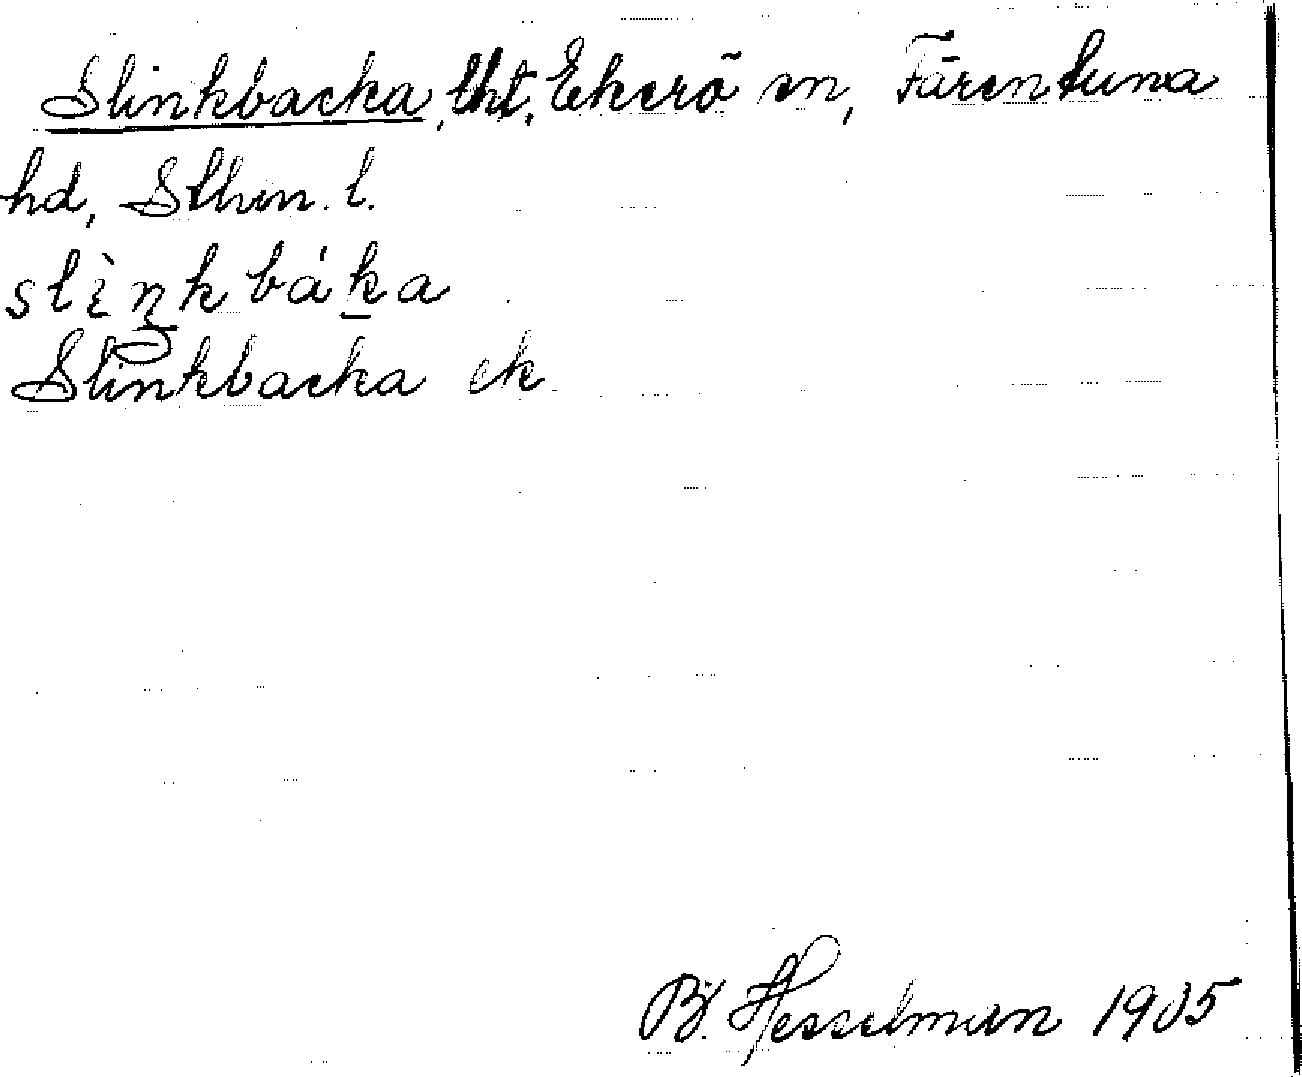 Slinkbacka, lht, Ekerö sn, Färentuna
hd, Sthm. l.
slìŋkbáka
Slinkbacka ek
Bj. Hesselman 1905